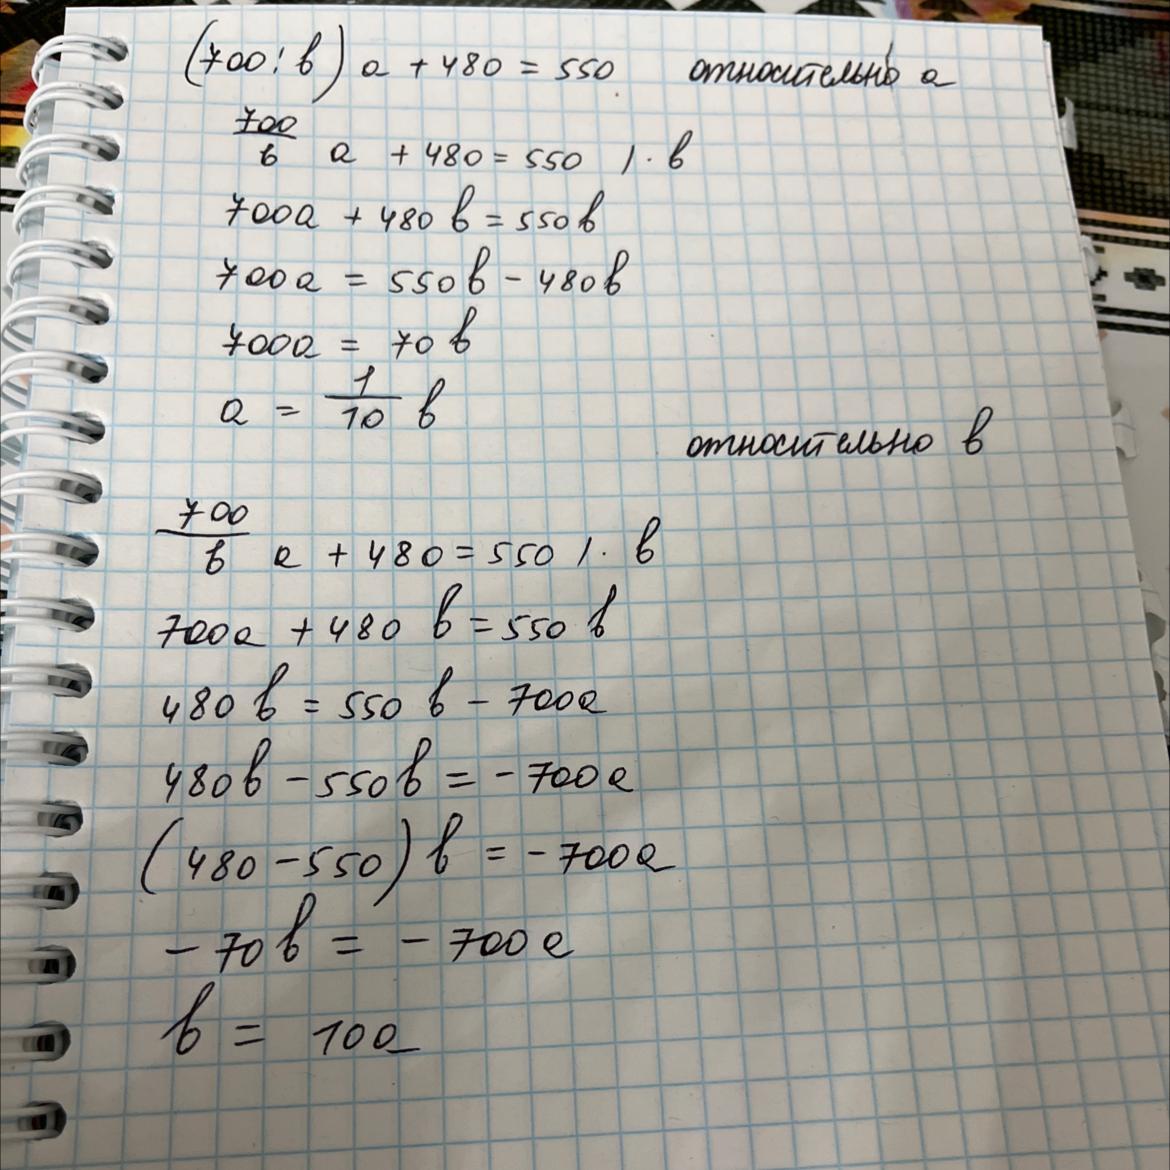 (700:в) а + 480 = 550 относительно а
700/в а + 480 = 550 /· в
700а + 480 в = 550в
700а = 550в - 480в
700а = 70 в
а = 1/10 в
относительно в
700/в а + 480 = 550 /· в
700а + 480 в = 550 в
480 в = 550 в - 700а
480в - 550в = - 700а
(480 - 550) в = - 700а
- 70в = - 700а
в = 10а